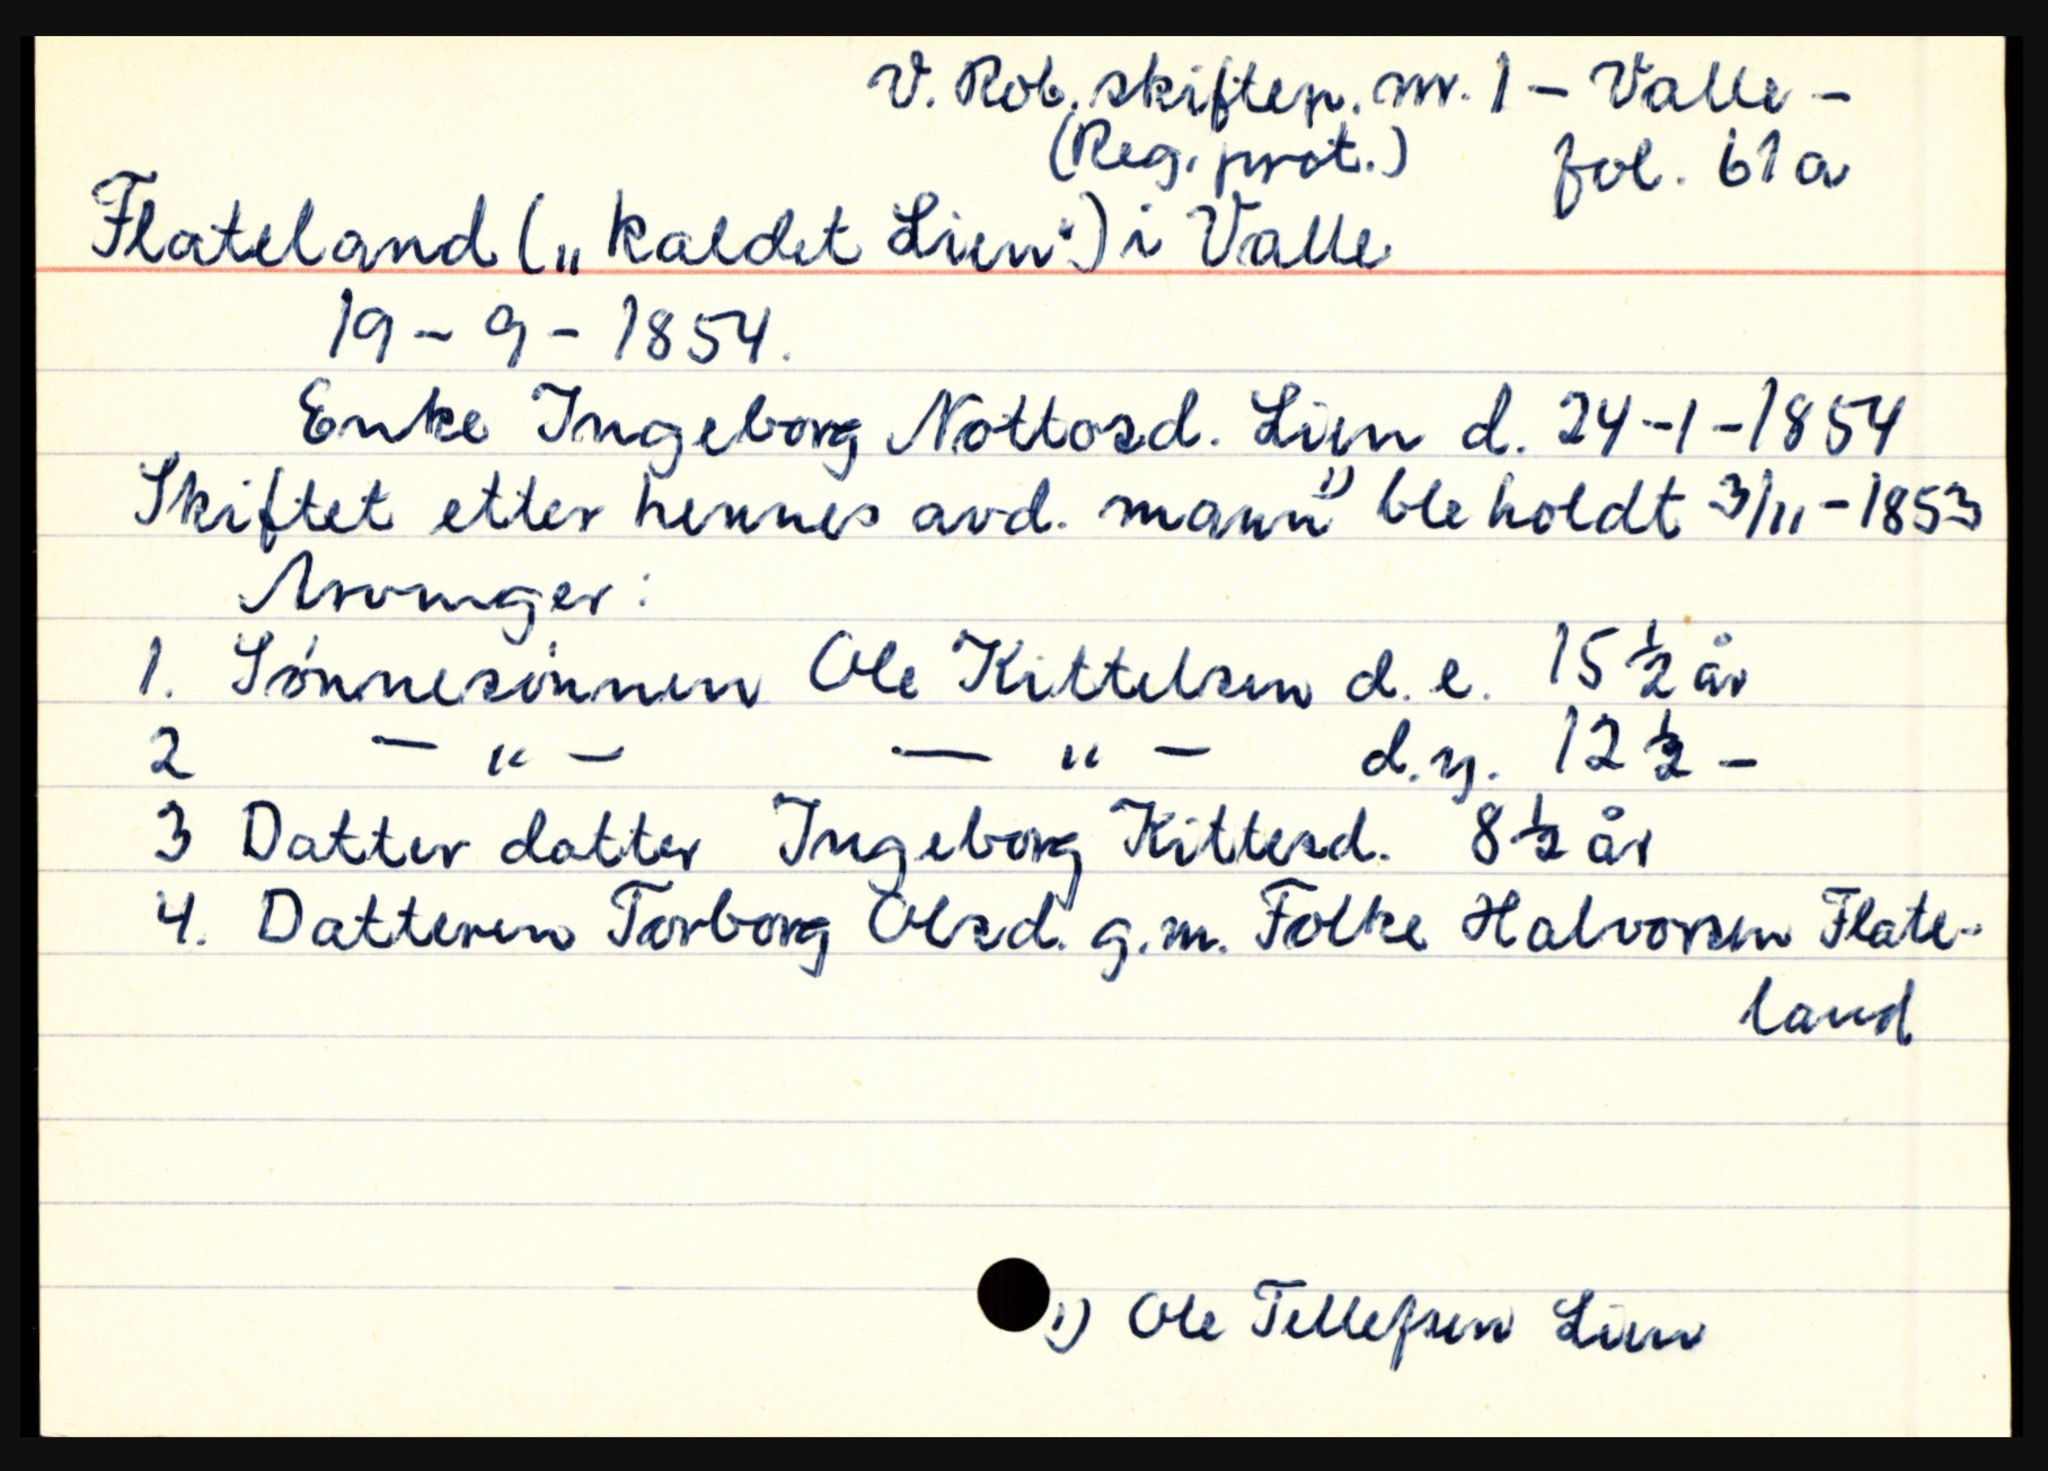 V. Rob. skiftep. nr. 1 - Valle -
(Reg. prot.) fol. 61a
Flateland („kaldet Lien") i Valle
19 - 9 - 1854.
Enke Ingeborg Nottosd. Lien d. 24-1-1854
Skiftet etter hennes avd. mann 1) ble holdt 3/11-1853
Arvinger:
1. Sønnesønnen Ole Kittelsen d. e. 15 ½ år
2 - " - - " - d.y. 12 ½ -
3 Datter datter Ingeborg Kittesd. 8 ½ år
4. Datteren Torborg Olsd. g.m. Folke Halvorsen Flate-
land
1) Ole Tellefsen Lien